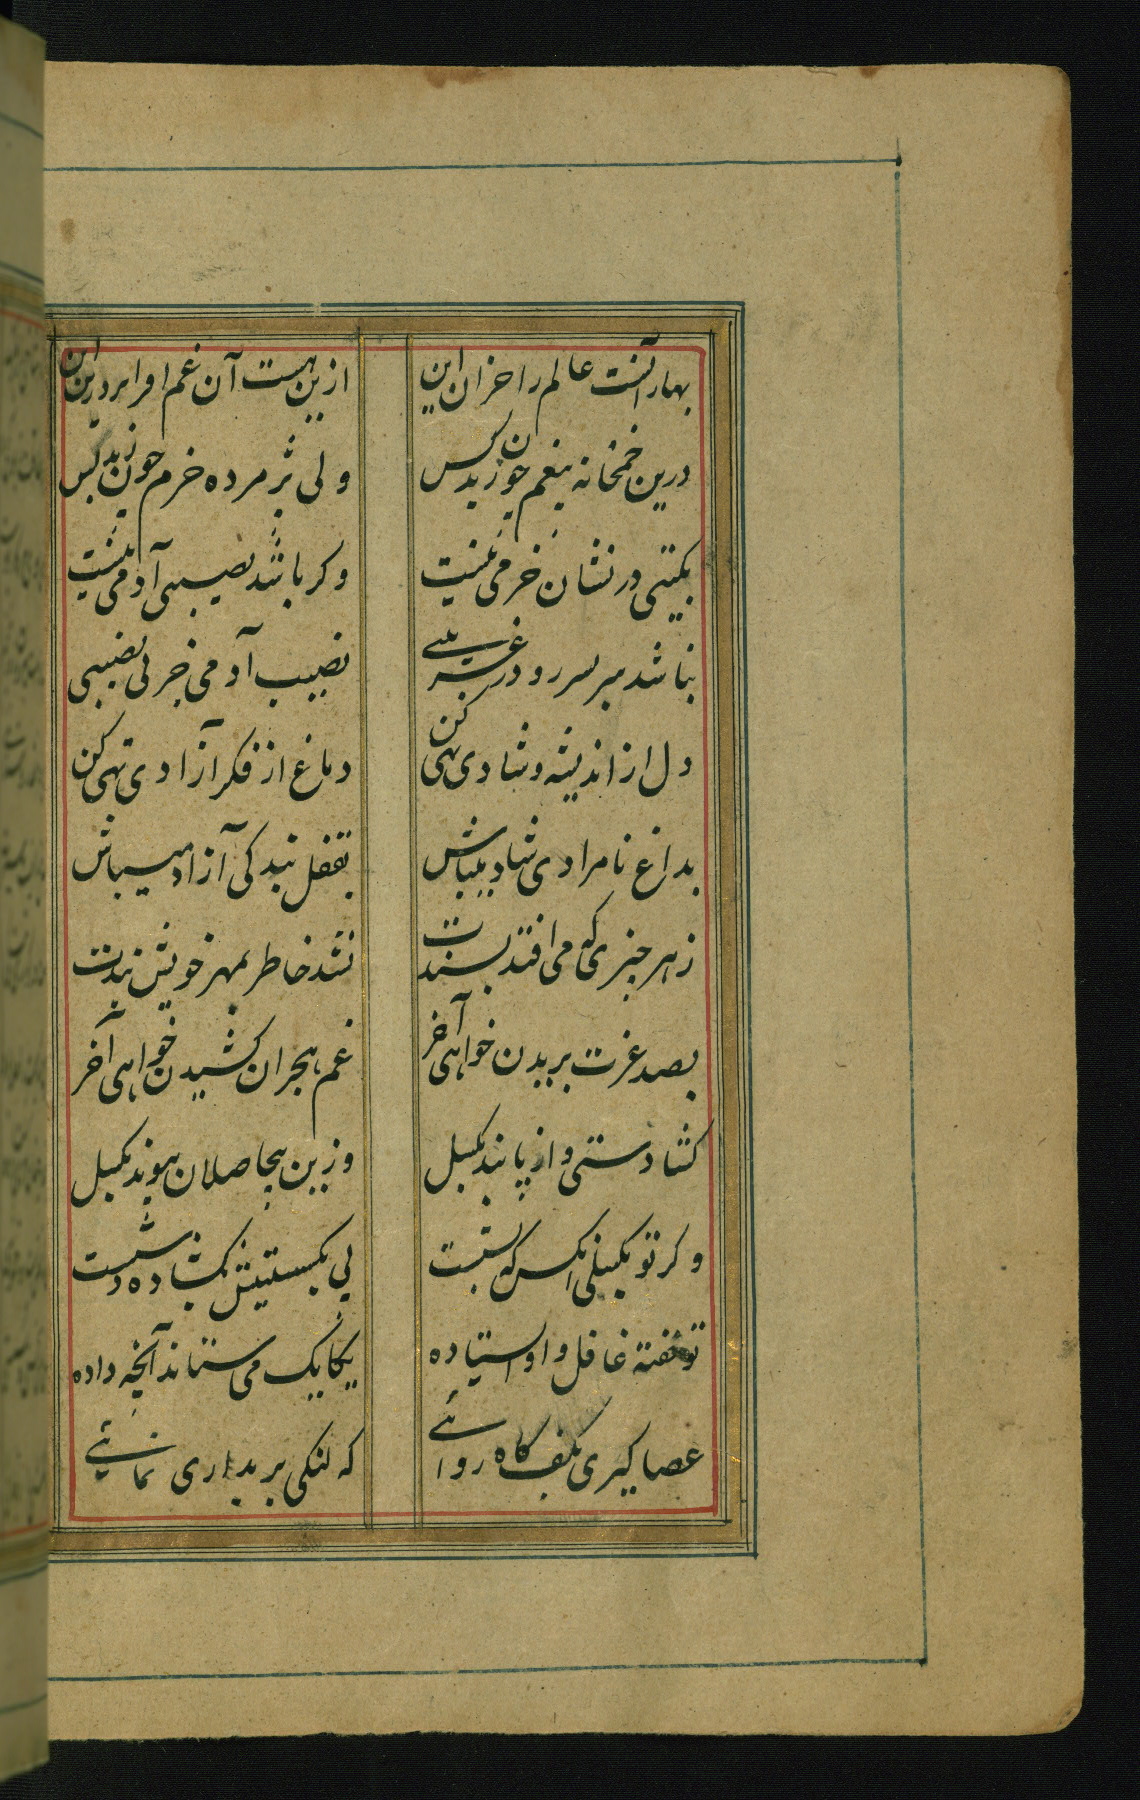 بهار آنست عالم را خزان این
ازین هست آن غم افزا بر درین این
درین خمخانه بیغم چون زید کس
ولی پژمرده خرم چون زید کس
بکیتی در نشان خرمی نیست
وکر باشد نصیبی آدمی نیست
نباشد میر بسر رو در غریبی
نصیب آدمی جز بی نصیبی
دل از اندیشه و شادی تهی کن
دماغ از فکر آزادی تهی کن
بداغ نامرادی شاد میباش
بقفل بندکی آزاد میباش
زهر چیزی که می افتد پسندت
نشد خاطر بمهر خویش بندت
بصد عزت بریدن خواهی آخر
غم هجران کشیدن خواهی آخر
کشا دستی و از پا بند بکسل
وزین بیحاصلان پیوند بکسل
وکر تو بکسلی انکس که بستت
پی بکسستنش بکشاده دستت
تو خفته غافل و او ایستاده
یکایک می ستاند آنچه داده
عصا کیری بکف کاه روائی
که لنکی بر بداری نمائی